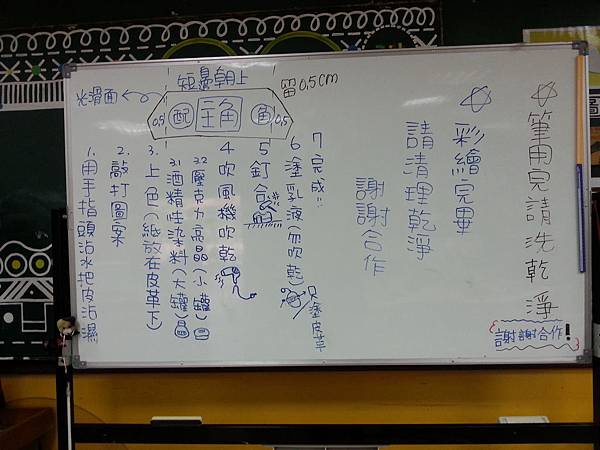 短邊朝上
留0.5cm
光滑面
0.5 配 主角 角 0.5
1. 用手指頭沾水把皮沾濕
2. 敲打圖案
3. 上色(紙放在皮革下)
3.1 酒精性染料(大罐)
3.2 壓克力亮晶(小罐)
4 吹風機吹乾
5 釘合
6 塗乳液(勿吹乾)
只塗皮革
7 完成!!
☆筆用完請洗乾淨
☆彩繪完畢
請清理乾淨
謝謝合作
謝謝合作!